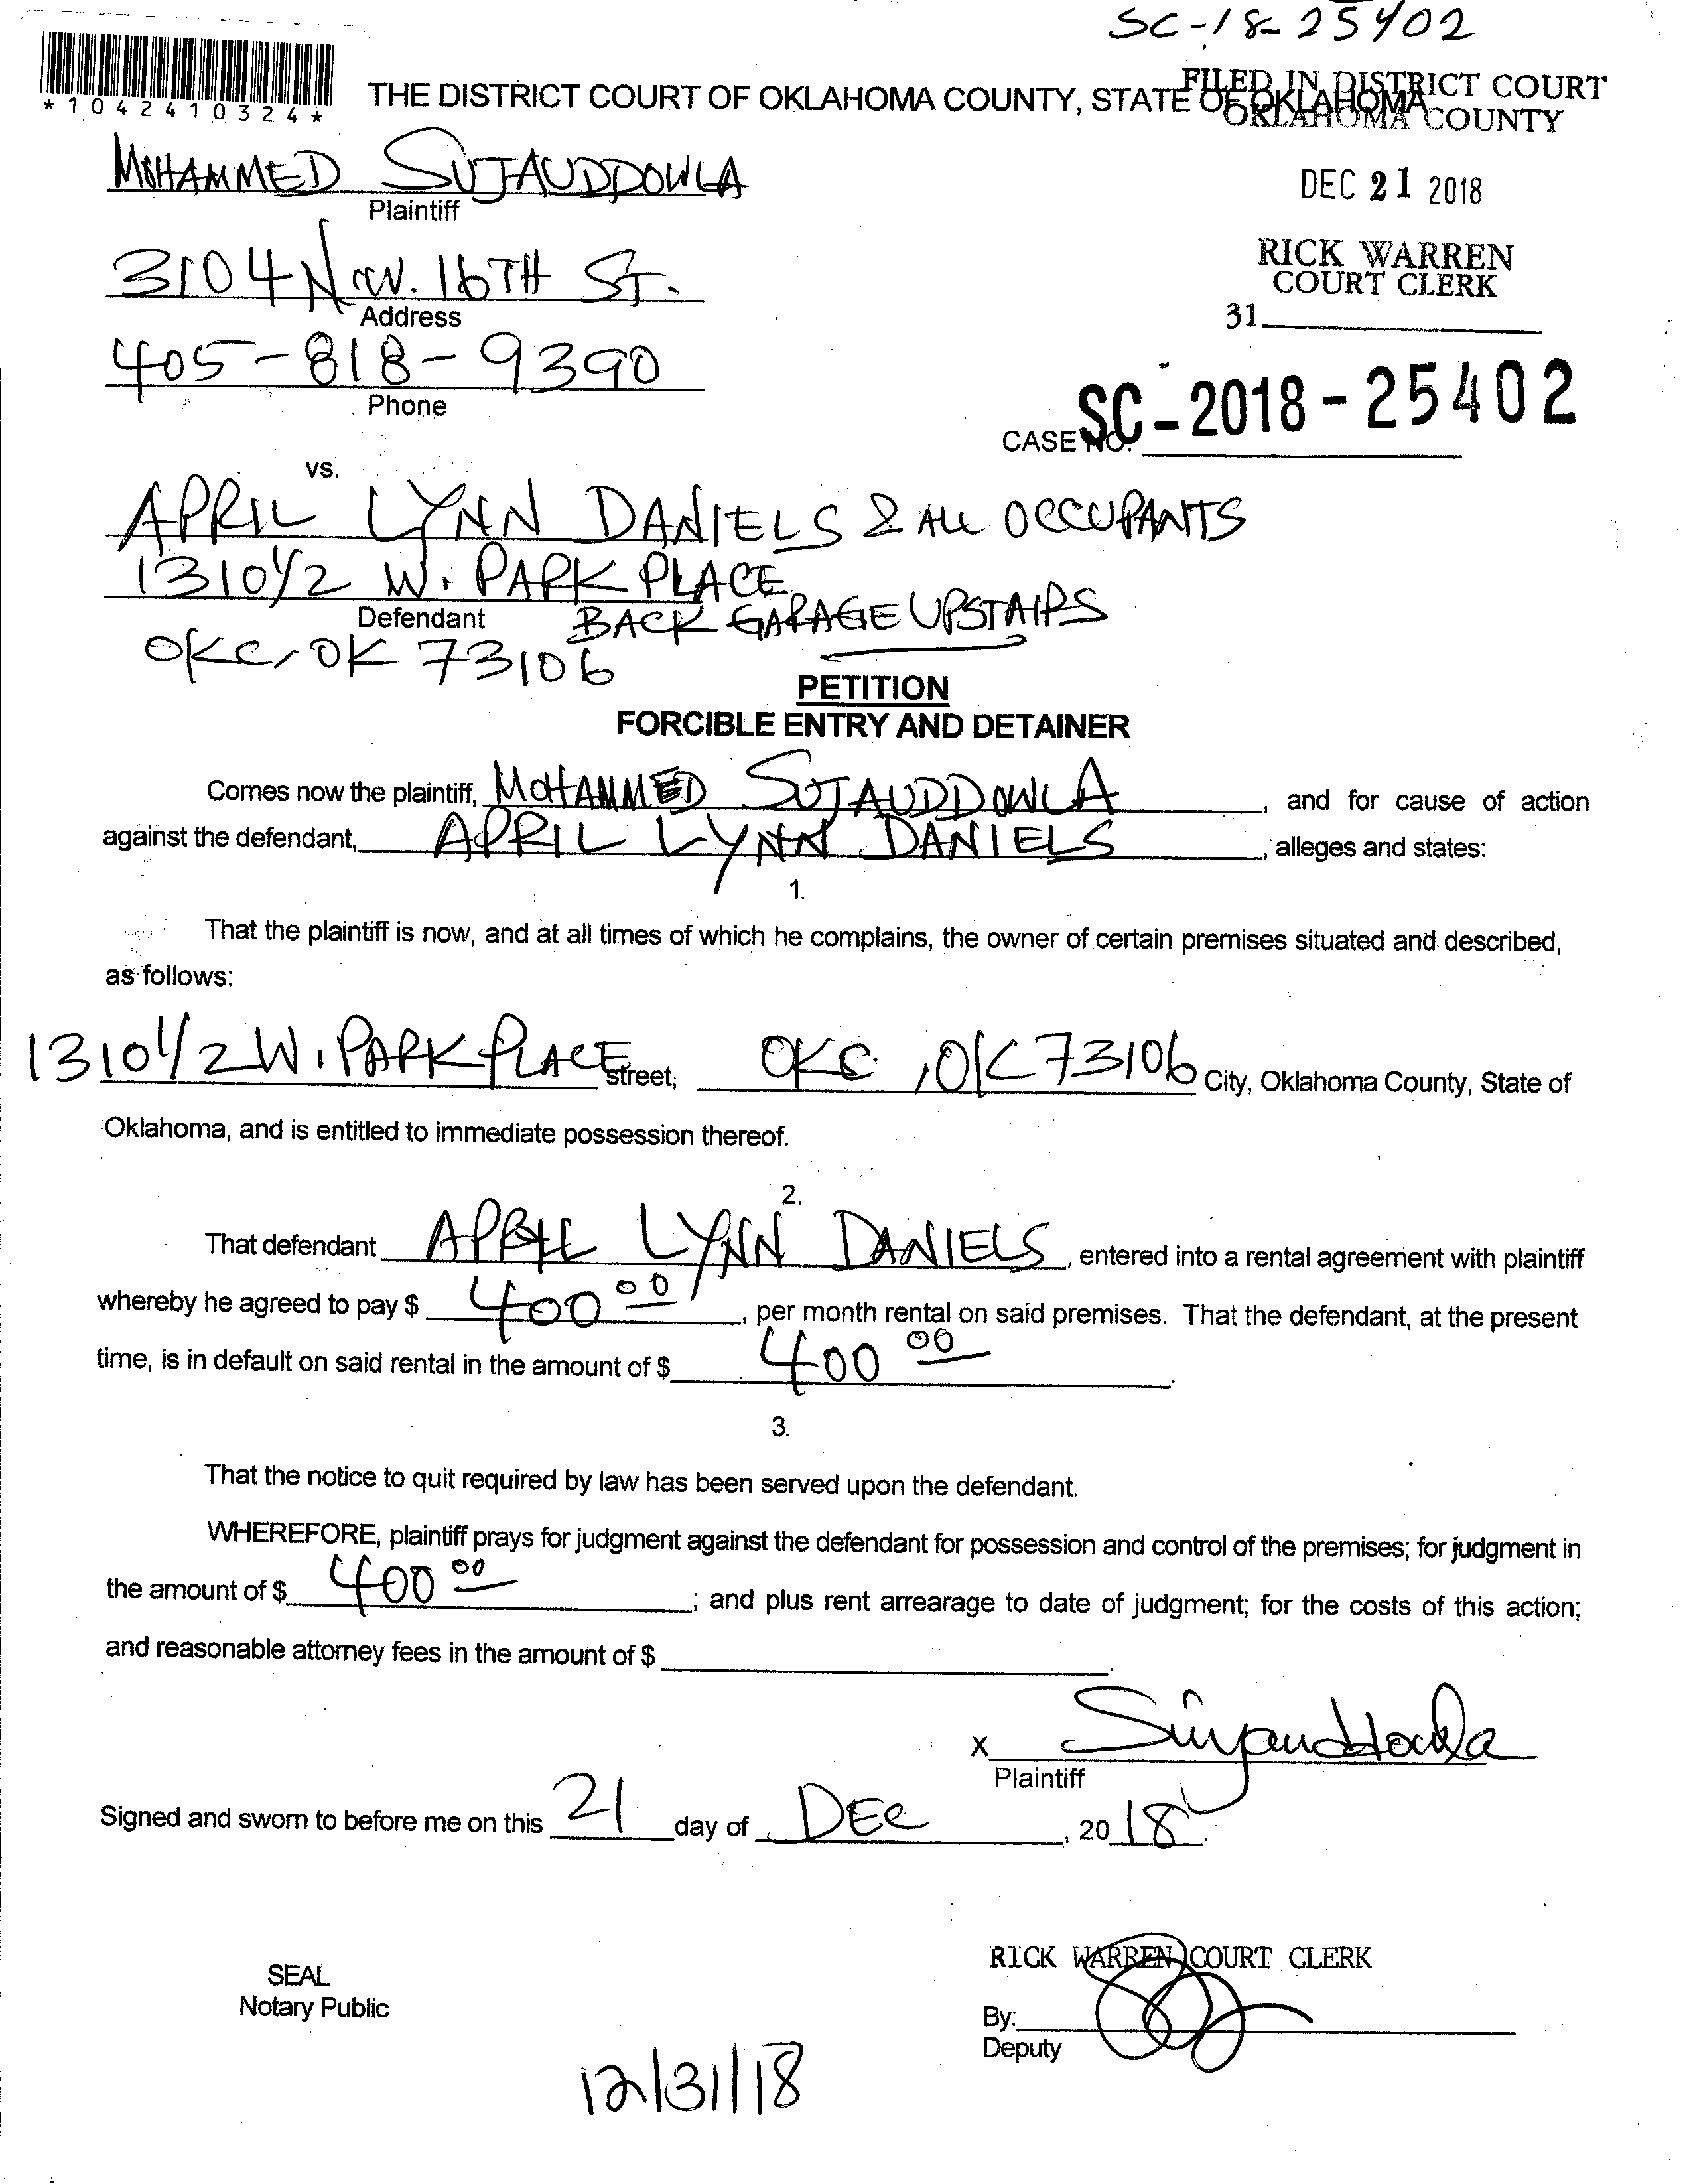 SC-18-25402
*1042410324*
THE DISTRICT COURT OF OKLAHOMA COUNTY, STATE OF OKLAHOMA
FILED IN DISTRICT COURT
OKLAHOMA COUNTY
MOHAMMED SUJAUDDOWLA
Plaintiff
DEC 21 2018
3104 N.W. 16TH ST.
Address
RICK WARREN
COURT CLERK
31
405-818-9390
Phone
CASE NO. SC-2018-25402
vs.
APRIL LYNN DANIELS & ALL OCCUPANTS
1310 1/2 W. PARK PLACE
Defendant BACK GARAGE UPSTAIRS
OKC, OK 73106
PETITION
FORCIBLE ENTRY AND DETAINER
Comes now the plaintiff, MOHAMMED SUJAUDDOWLA, and for cause of action
against the defendant, APRIL LYNN DANIELS, alleges and states:
1.
That the plaintiff is now, and at all times of which he complains, the owner of certain premises situated and described,
as follows:
1310 1/2 W. PARK PLACE street, OKC, OK 73106 City, Oklahoma County, State of
Oklahoma, and is entitled to immediate possession thereof.
2.
That defendant APRIL LYNN DANIELS, entered into a rental agreement with plaintiff
whereby he agreed to pay $ 400 00, per month rental on said premises. That the defendant, at the present
time, is in default on said rental in the amount of $ 400 00.
3.
That the notice to quit required by law has been served upon the defendant.
WHEREFORE, plaintiff prays for judgment against the defendant for possession and control of the premises; for judgment in
the amount of $ 400 00; and plus rent arrearage to date of judgment; for the costs of this action;
and reasonable attorney fees in the amount of $ .
X Sujauddowla
Plaintiff
Signed and sworn to before me on this 21 day of DEC, 2018.
RICK WARREN COURT CLERK
SEAL
Notary Public
By:
Deputy
12/31/18